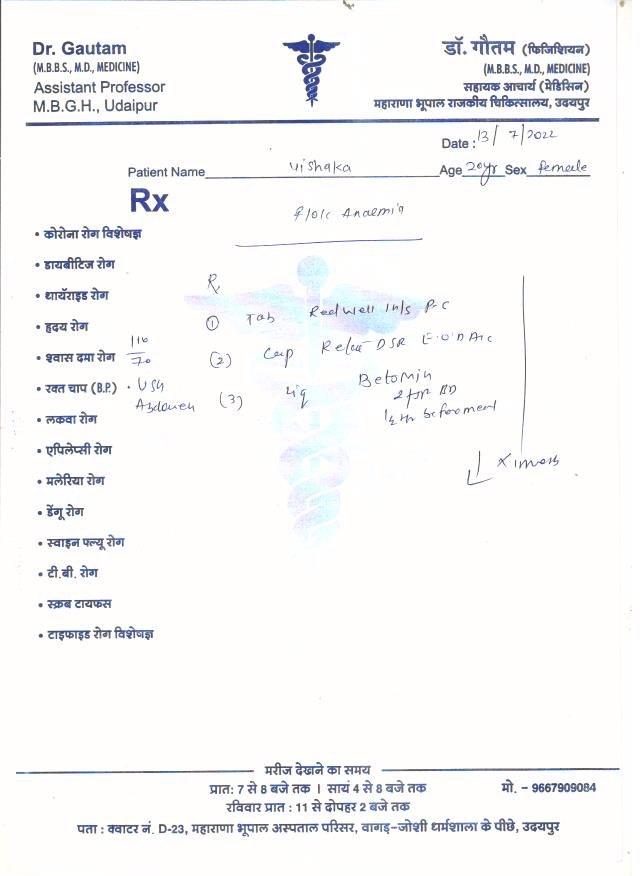 Dr. Gautam
(M.B.B.S., M.D., MEDICINE)
Assistant Professor
M.B.G.H., Udaipur
डॉ. गौतम (फिजिशियन)
(M.B.B.S., M.D., MEDICINE)
सहायक आचार्य (मेडिसिन)
महाराणा भूपाल राजकीय चिकित्सालय, उदयपुर
Date : 13/7/2022
Patient Name Vishaka Age 20yr Sex female
Rx
Anaemia
• कोरोना रोग विशेषज्ञ
• डायबीटिज रोग
Rx
• थायरॉइड रोग
(1) Tab Redwell
• हृदय रोग
110/70
• श्वास दमा रोग
(2) Cap DSR
• रक्त चाप (B.P.)
• USG
Abdomen
(3) liq Betomin
BD
1/2 hr
• लकवा रोग
• एपिलेप्सी रोग
• मलेरिया रोग
• डेंगू रोग
• स्वाइन फ्ल्यू रोग
• टी.बी. रोग
• स्क्रब टायफस
• टाइफाइड रोग विशेषज्ञ
मरीज देखाने का समय
प्रात: 7 से 8 बजे तक । सायं 4 से 8 बजे तक
मो. - 9667909084
रविवार प्रात : 11 से दोपहर 2 बजे तक
पता : क्वाटर नं. D-23, महाराणा भूपाल अस्पताल परिसर, वागड़-जोशी धर्मशाला के पीछे, उदयपुर